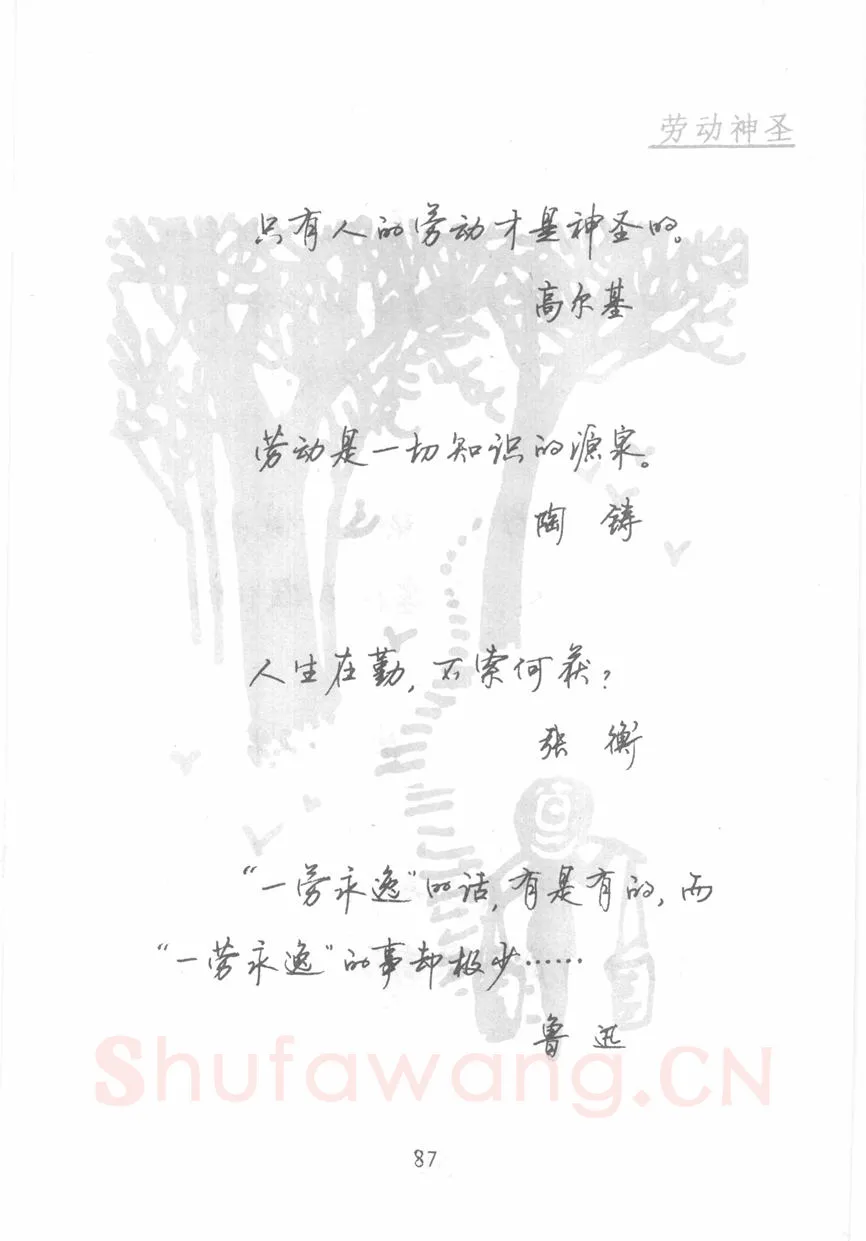 劳动神圣
只有人的劳动才是神圣的。
高尔基
劳动是一切知识的源泉。
陶 铸
人生在勤,不索何获?
张 衡
“一劳永逸”的话,有是有的,而
“一劳永逸”的事却极少……
鲁 迅
Shufawang.CN
87